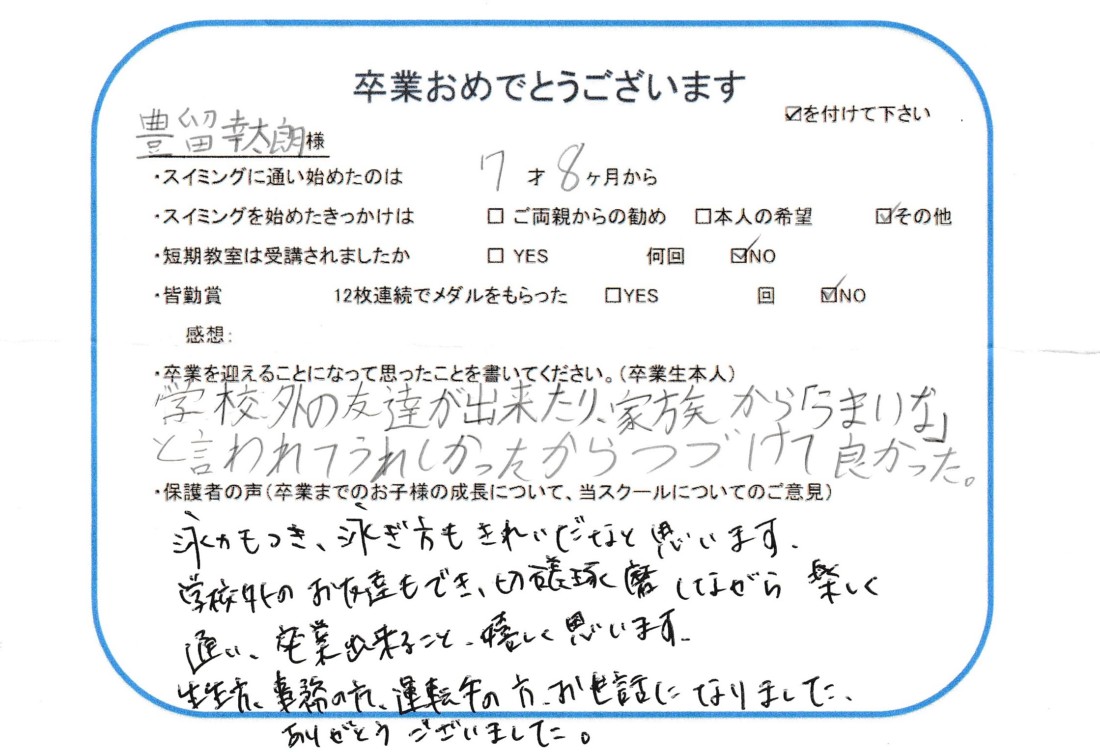 卒業おめでとうございます
☑を付けて下さい
豊留幸太朗様
・スイミングに通い始めたのは 7才8ヶ月から
・スイミングを始めたきっかけは □ご両親からの勧め □本人の希望 ☑その他
・短期教室は受講されましたか □YES 何回 ☑NO
・皆勤賞 12枚連続でメダルをもらった □YES 回 ☑NO
感想:
・卒業を迎えることになって思ったことを書いてください。(卒業生本人)
学校外の友達が出来たり、家族から「うまいな」
と言われてうれしかったからつづけて良かった。
・保護者の声(卒業までのお子様の成長について、当スクールについてのご意見)
泳力もつき、泳ぎ方もきれいだなと思います.
学校外のお友達もでき、切磋琢磨しながら楽しく
通い、卒業出来ること、嬉しく思います.
先生方、事務の方、運転手の方、お世話になりました、
ありがとうございました。